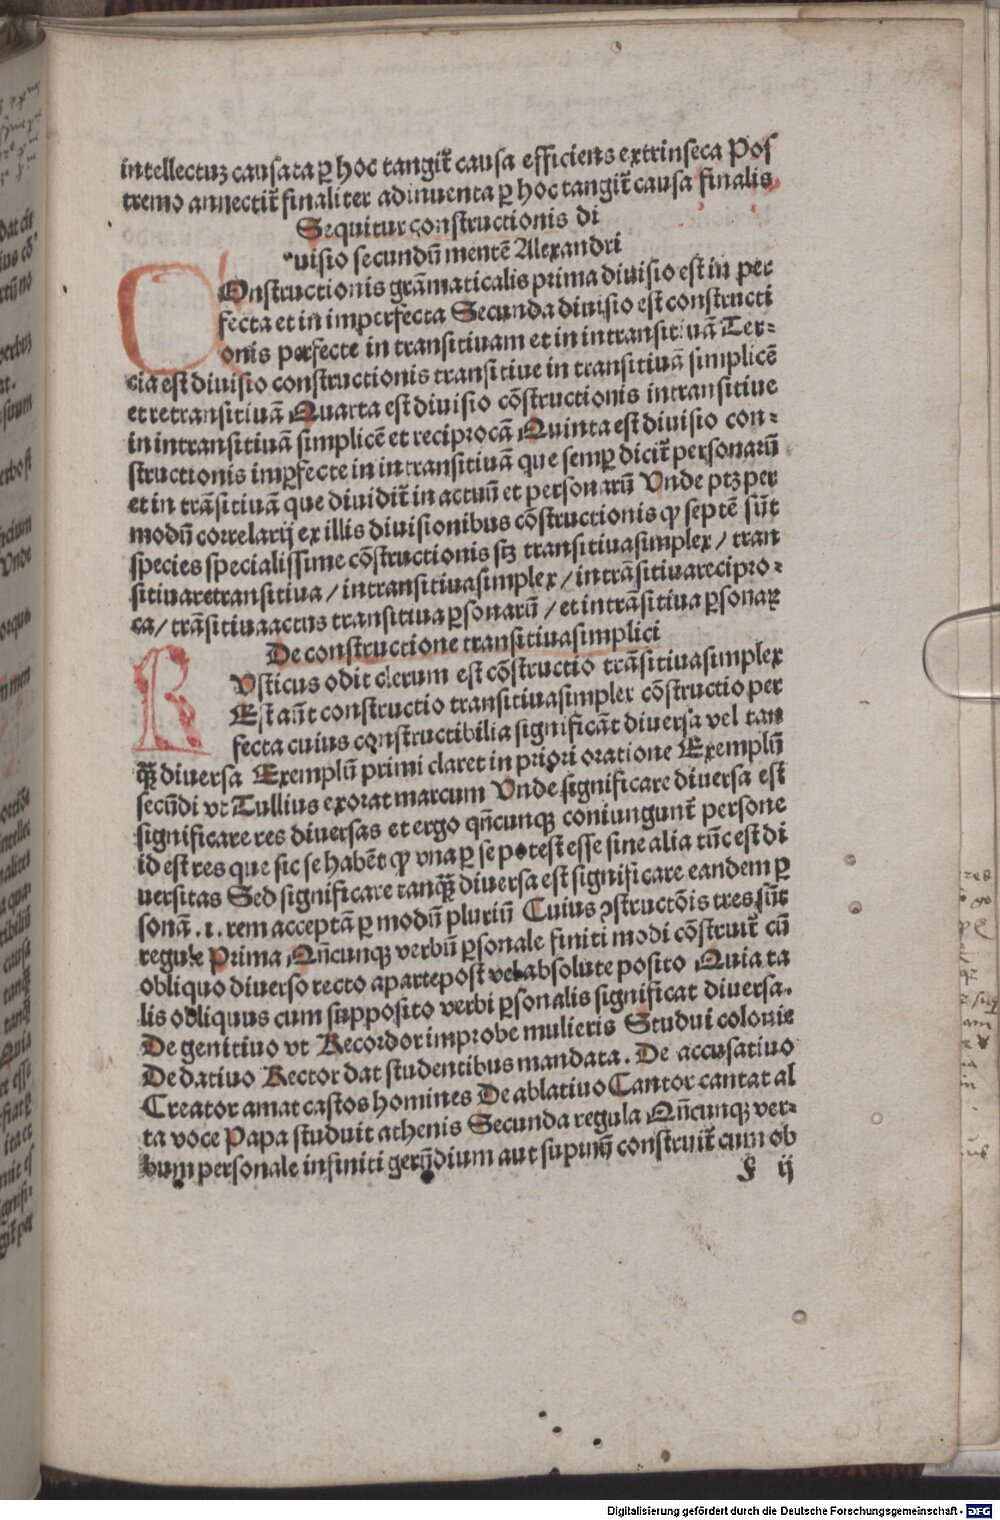 intellectuꝫ causata ꝑ hoc tangit᷑ causa efficiens extrinseca Pos
tremo annectit᷑ finaliter adinuenta ꝑ hoc tangit᷑ causa finalis
Sequitur constructionis di
uisio secundū mentē Alexandri
COnstructionis grāmaticalis prima diuisio est in per
fecta et in imperfecta Secunda diuisio est constructi
onis perfecte in transitiuam et in intransitiuā Ter-
cia est diuisio constructionis transitiue in transitiuā simplicē
et retransitiuā Quarta est diuisio cōstructionis intransitiue
in intransitiuā simplicē et reciprocā Quinta est diuisio con-
structionis imꝑfecte in intransitiuā que semꝑ dicit᷑ personarū
et in trāsitiuā que diuidit᷑ in actuū et personarū Unde ptꝫ per
modū correlarij ex illis diuisionibus cōstructionis ꝙ septē sūt
species specialissime cōstructionis sꝫ transitiuasimplex / tran
sitiuaretransitiua / intransitiuasimplex / intrāsitiuarecipro-
ca / trāsitiuaactus transitiua ꝑsonarū / et intrāsitiua ꝑsonaꝝ
De constructione transitiuasimplici
RUsticus odit clerum est cōstructio trāsitiuasimplex
Est aūt constructio transitiuasimplex cōstructio per
fecta cuius constructibilia significāt diuersa vel tan
qꝫ̄ diuersa Exemplū primi claret in priori oratione Exemplū
secūdi vt Tullius exorat marcum Unde significare diuersa est
significare res diuersas et ergo qn̄cunqꝫ coniungunt᷑ persone
id est res que sic se habēt ꝙ vna ꝑ se potest esse sine alia tūc est di
uersitas Sed significare tanqꝫ̄ diuersa est significare eandem ꝑ
sonā .i. rem acceptā ꝑ modū pluriū Cuius ꝯstructōis tres sūt
regule Prima Qn̄cunqꝫ verbū ꝑsonale finiti modi cōstruit᷑ cū
obliquo diuerso recto apartepost vel absolute posito Quia ta
lis obliquus cum supposito verbi ꝑsonalis significat diuersa.
De genitiuo vt Recordor improbe mulieris Studui colonie
De datiuo Rector dat studentibus mandata. De accusatiuo
Creator amat castos homines De ablatiuo Cantor cantat al
ta voce Papa studuit athenis Secunda regula Qn̄cunqꝫ ver-
bum personale infiniti gerūdium aut supinū construit᷑ cum ob
f ij
Digitalisierung gefördert durch die Deutsche Forschungsgemeinschaft - DFG